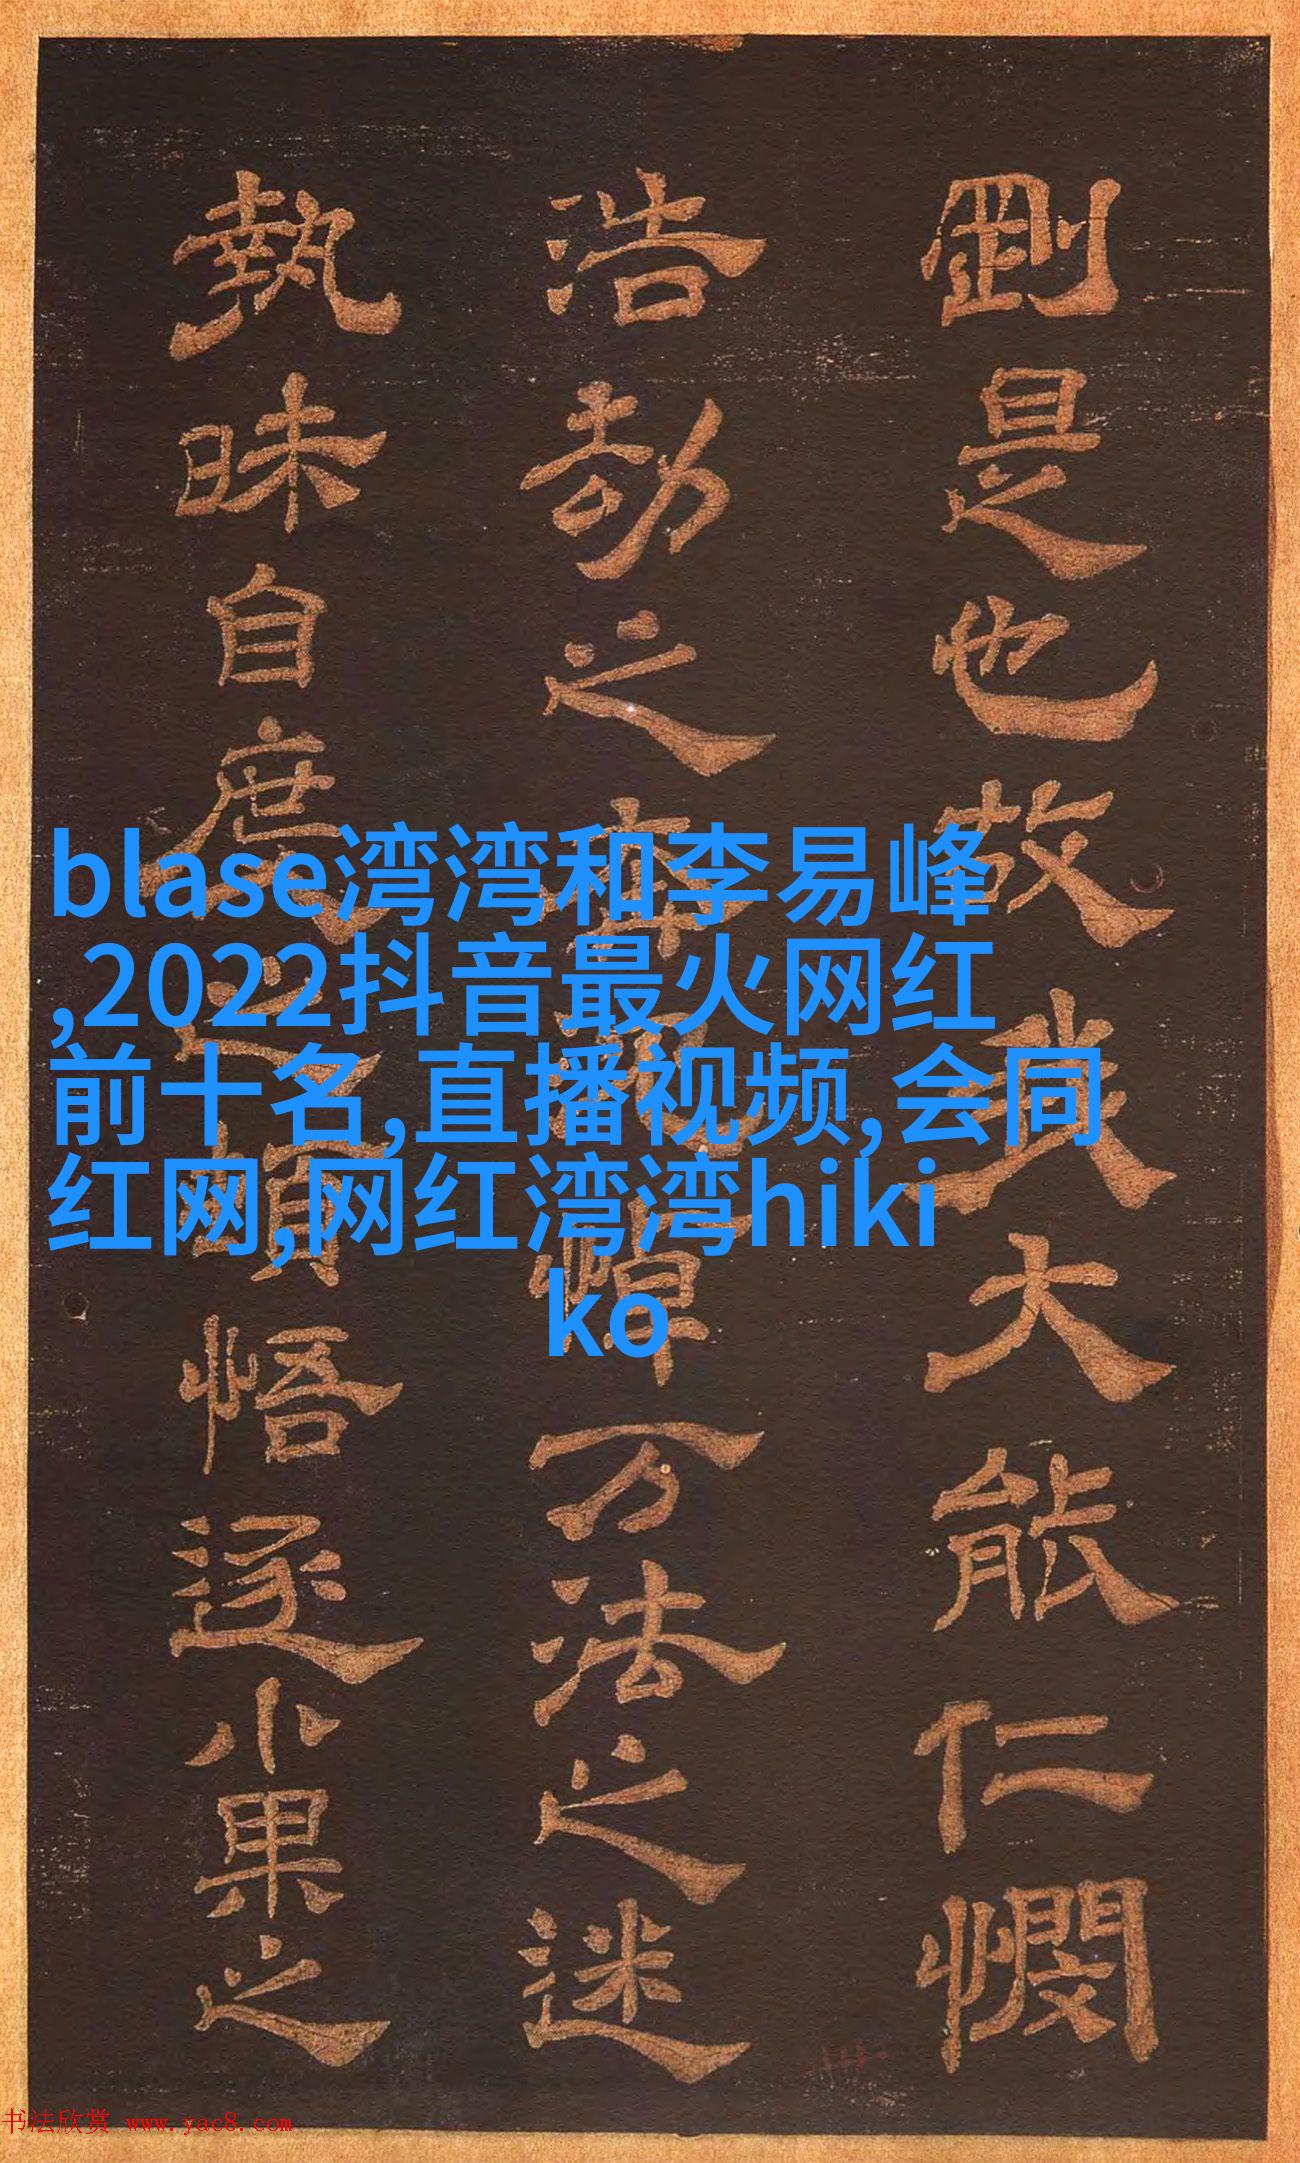 剛是也故我大能仁憫
浩劫之
万法之迷
執昧自度之
悟逐小果之
blase湾湾和李易峰
,2022抖音最火网红
前十名,直播视频,会同
红网,网红湾湾hiki
ko
书法欣赏 www.yac8.com